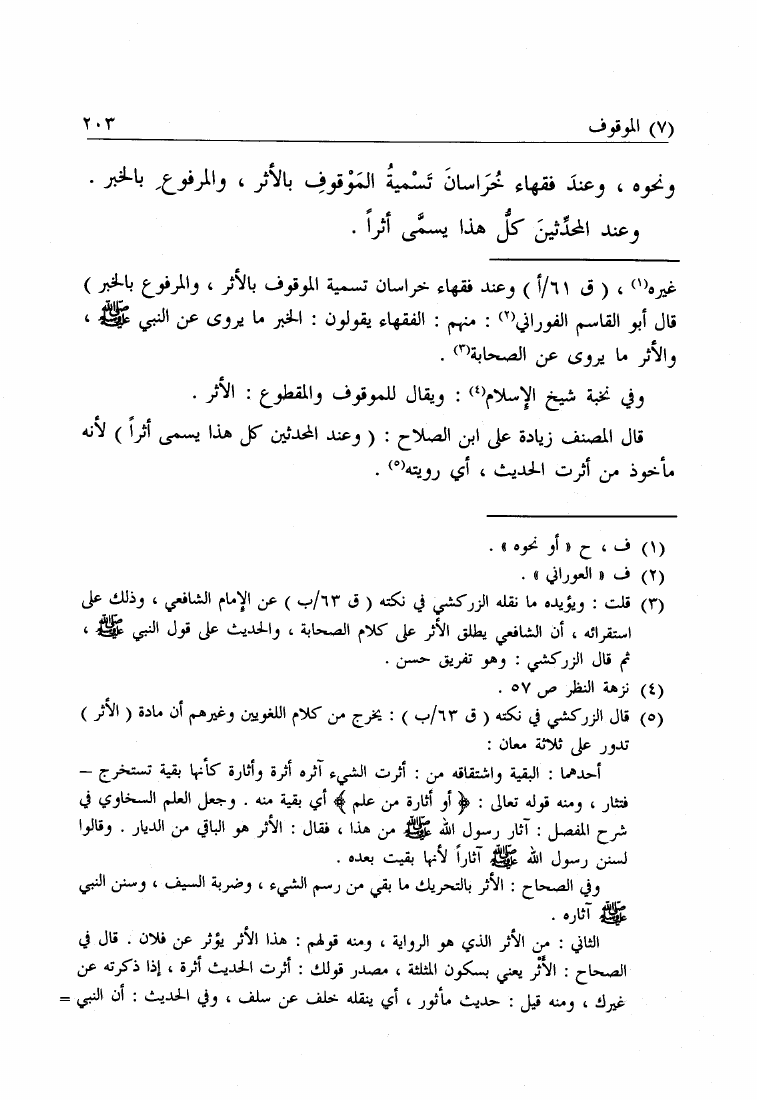 (٧) الموقوف ٢٠٣
ونحوه ، وعندَ فقهاء خُرَاسانَ تَسْميةُ المَوْقوفِ بالأثر ، والمرفوعِ بالخبر .
وعند المحدِّثينَ كلُّ هذا يسمَّى أثراً .
غيره(١) ، ( ق ٦١/أ ) وعند فقهاء خراسان تسمية الموقوف بالأثر ، والمرفوع بالخبر )
قال أبو القاسم الفوراني(٢) : منهم : الفقهاء يقولون : الخبر ما يروى عن النبي ﷺ ،
والأثر ما يروى عن الصحابة(٣) .
وفي نخبة شيخ الإسلام(٤) : ويقال للموقوف والمقطوع : الأثر .
قال المصنف زيادة على ابن الصلاح : ( وعند المحدثين كل هذا يسمى أثراً ) لأنه
مأخوذ من أثرت الحديث ، أي رويته(٥) .
(١) ف ، ح « أو نحوه » .
(٢) ف « العوراني » .
(٣) قلت : ويؤيده ما نقله الزركشي في نكته ( ق ٦٣/ب ) عن الإمام الشافعي ، وذلك على
استقرائه ، أن الشافعي يطلق الأثر على كلام الصحابة ، والحديث على قول النبي ﷺ ،
ثم قال الزركشي : وهو تفريق حسن .
(٤) نزهة النظر ص ٥٧ .
(٥) قال الزركشي في نكته ( ق ٦٣/ب ) : يخرج من كلام اللغويين وغيرهم أن مادة ( الأثر )
تدور على ثلاثة معان :
أحدهما : البقية واشتقاقه من : أثرت الشيء آثره أثرة وأثارة كأنها بقية تستخرج –
فتثار ، ومنه قوله تعالى : ﴿ أو أثارة من علم ﴾ أي بقية منه . وجعل العلم السخاوي في
شرح المفصل : آثار رسول الله ﷺ من هذا ، فقال : الأثر هو الباقي من الديار . وقالوا
لسنن رسول الله ﷺ آثاراً لأنها بقيت بعده .
وفي الصحاح : الأثر بالتحريك ما بقي من رسم الشيء ، وضربة السيف ، وسنن النبي
ﷺ آثاره .
الثاني : من الأثر الذي هو الرواية ، ومنه قولهم : هذا الأثر يؤثر عن فلان . قال في
الصحاح : الأَثْر يعني بسكون المثلثة ، مصدر قولك : أثرت الحديث أثرة ، إذا ذكرته عن
غيرك ، ومنه قيل : حديث مأثور ، أي ينقله خلف عن سلف ، وفي الحديث : أن النبي =